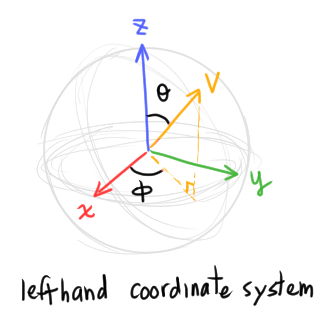 z
θ
V
y
x
ϕ
lefthand coordinate system